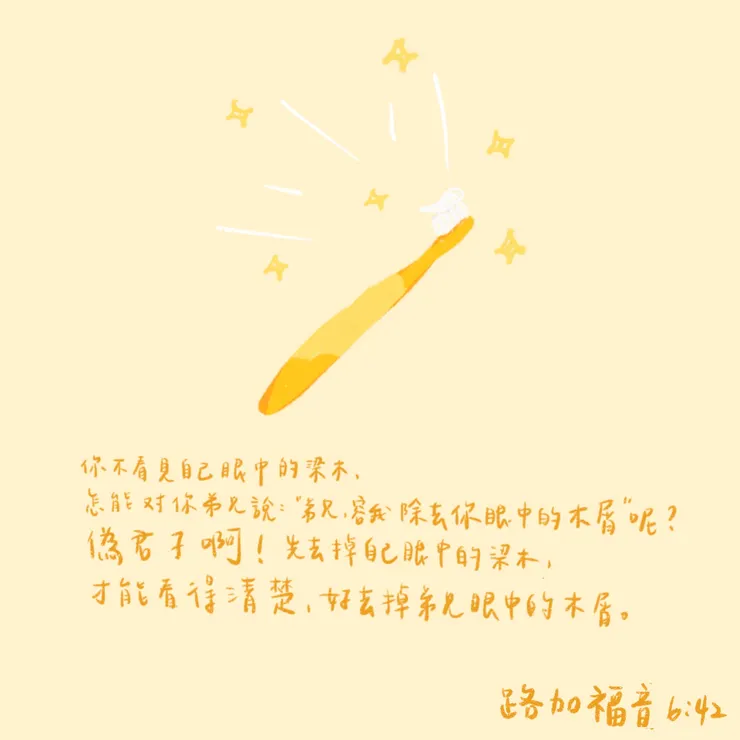 你不看見自己眼中的梁木，
怎能對你弟兄說：“弟兄，容我除去你眼中的木屑”呢？
偽君子啊！先去掉自己眼中的梁木，
才能看得清楚，好去掉弟兄眼中的木屑。
路加福音 6:42